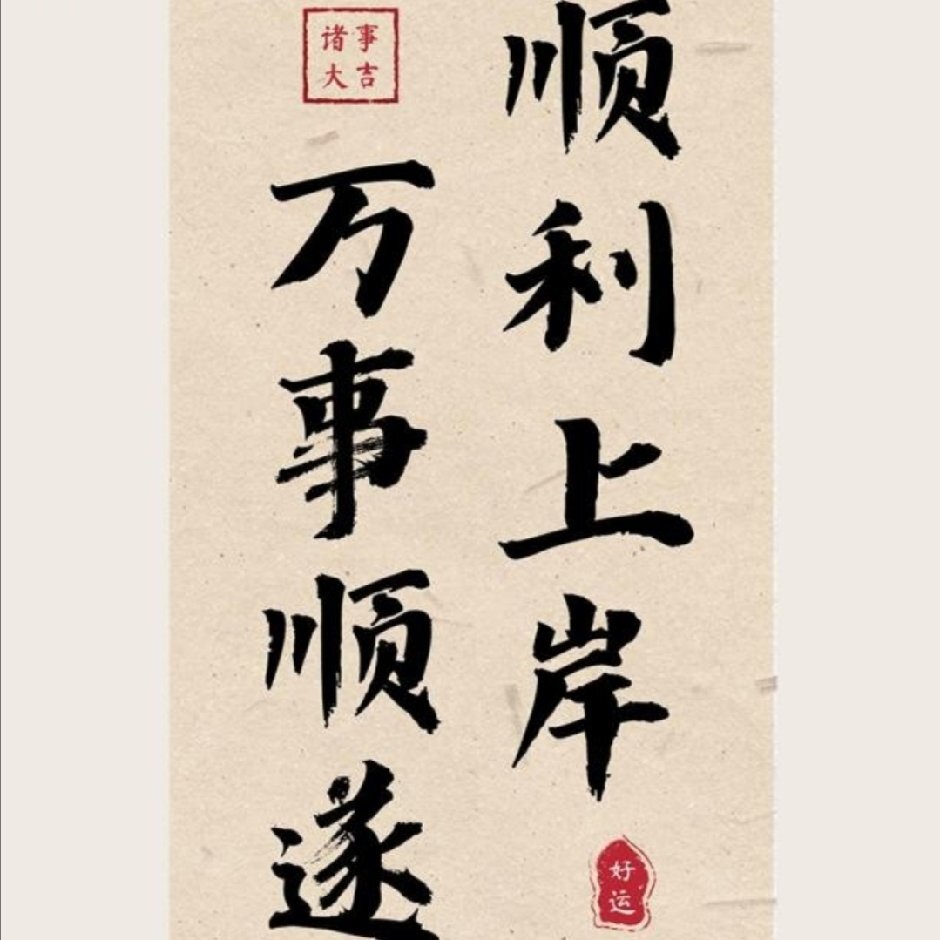 顺利上岸
万事顺遂
诸事
大吉
好运